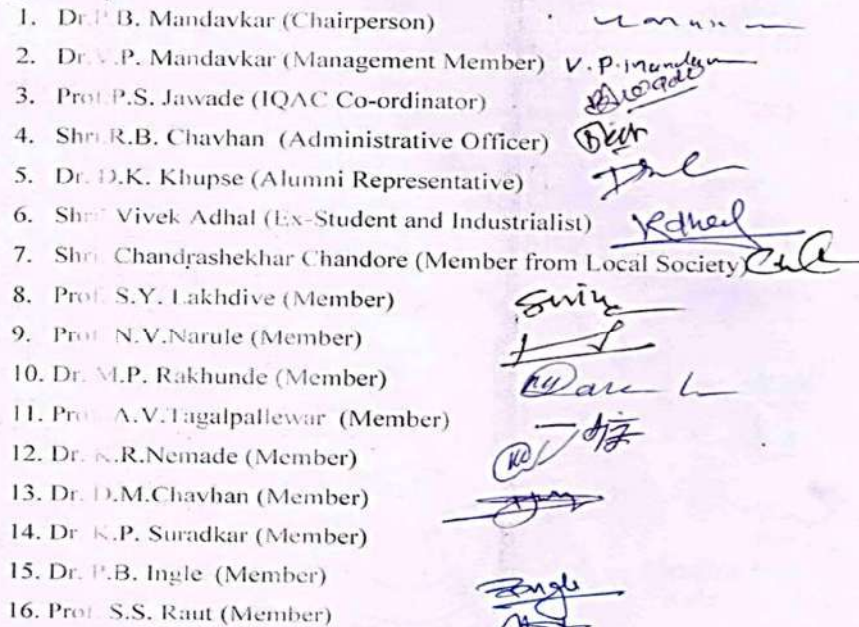 1. Dr.P.B. Mandavkar (Chairperson)
2. Dr.V.P. Mandavkar (Management Member) V.P.Mandavkar
3. Prof.P.S. Jawade (IQAC Co-ordinator)
4. Shri.R.B. Chavhan (Administrative Officer)
5. Dr. D.K. Khupse (Alumni Representative)
6. Shri. Vivek Adhal (Ex-Student and Industrialist)
7. Shri. Chandrashekhar Chandore (Member from Local Society)
8. Prof. S.Y. Lakhdive (Member)
9. Prof. N.V.Narule (Member)
10. Dr. M.P. Rakhunde (Member)
11. Prof. A.V.Tagalpallewar (Member)
12. Dr. K.R.Nemade (Member)
13. Dr. D.M.Chavhan (Member)
14. Dr. K.P. Suradkar (Member)
15. Dr. P.B. Ingle (Member)
16. Prof. S.S. Raut (Member)